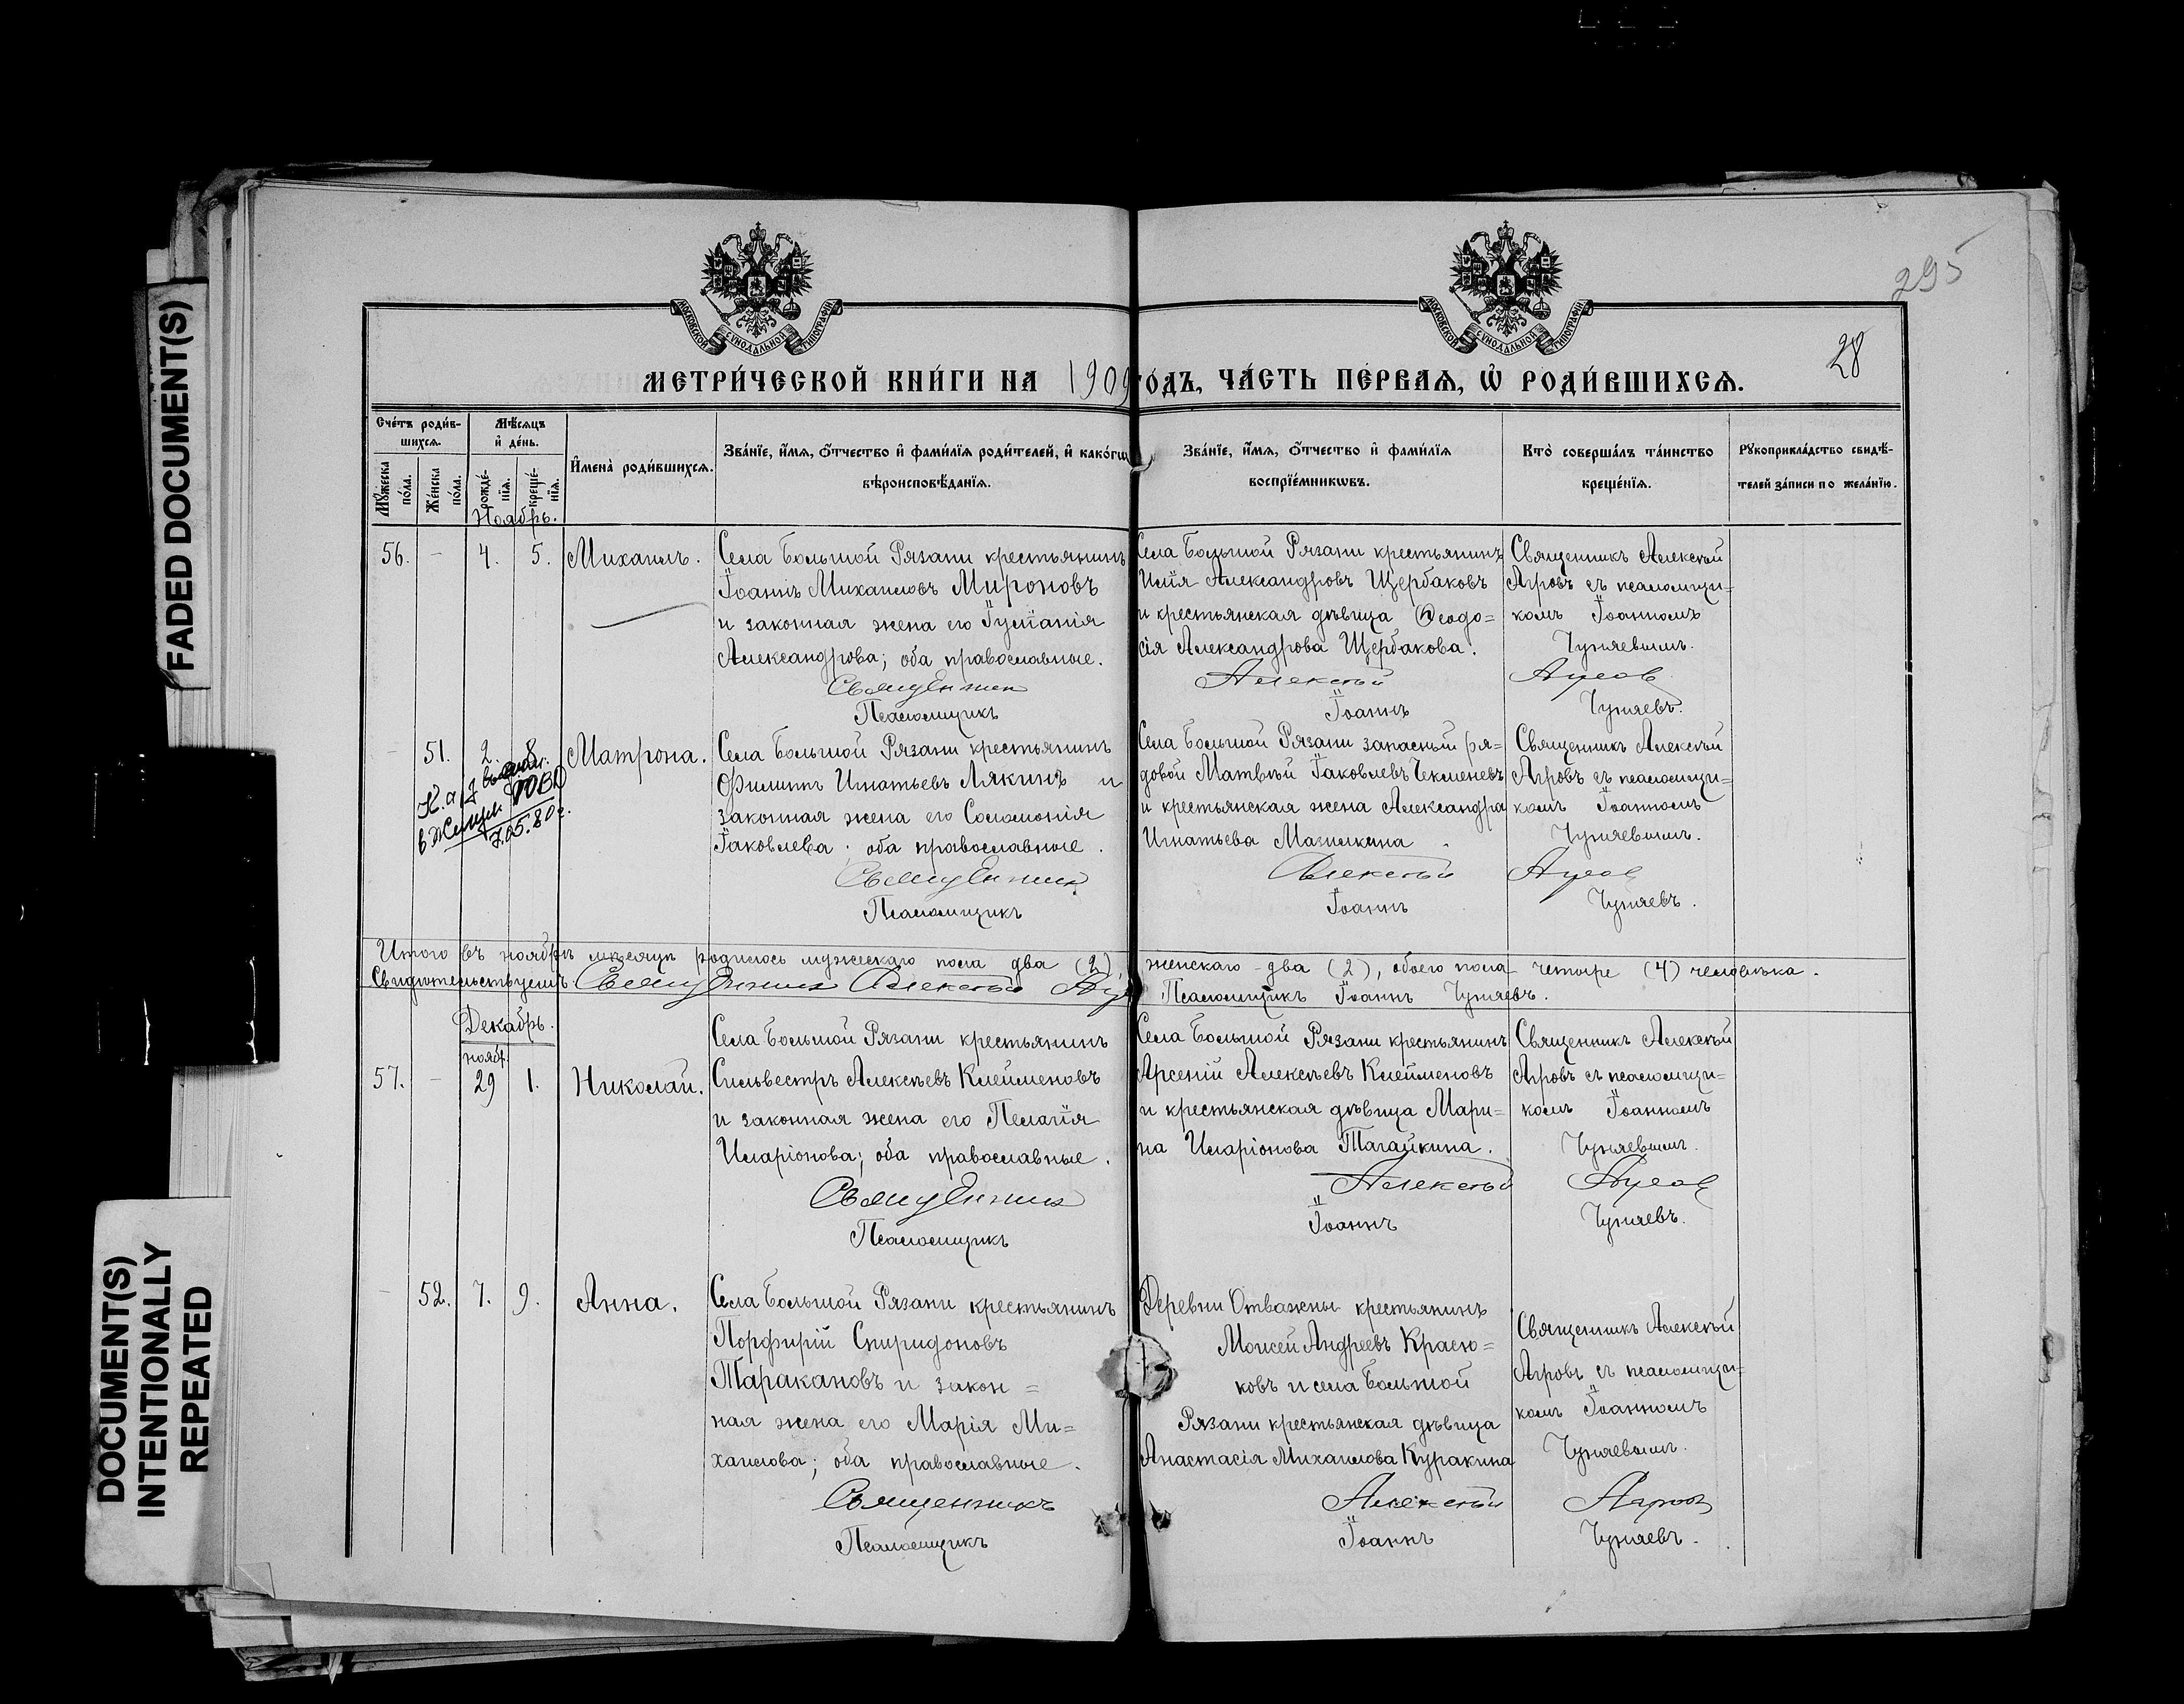 FADED DOCUMENT(S)
DOCUMENT(S)
INTENTIONALLY
REPEATED
295
28
МОСКОВСКОЙ СѴНОДАЛЬНОЙ ТИПОГРАФІИ
МОСКОВСКОЙ СѴНОДАЛЬНОЙ ТИПОГРАФІИ
МЕТРИ́ЧЕСКОЙ КНИ́ГИ НА 1909 ГО́ДЪ, ЧА́СТЬ ПЕ́РВАѦ, Ѡ҆ РОДИ́ВШИХСѦ.
Сче́тъ роди́в-
шихсѧ.
Мѹжеска по́ла.
Же́нска по́ла.
Мѣ́сѧцъ
и҆ де́нь.
рожде́-
нїѧ.
креще́-
нїѧ.
И҆мена̀ роди́вшихсѧ.
Зва́нїе, и҆́мѧ, ѻ҆́тчество и҆ фами́лїѧ роди́телей, и҆ како́гѡ
вѣроисповѣ́данїѧ.
Зва́нїе, и҆́мѧ, ѻ҆́тчество и҆ фами́лїѧ
воспрїе́мникѡвъ.
Кто̀ соверша́лъ та́инство
креще́нїѧ.
Рꙋкоприкла́дство свидѣ́-
телей за́писи по жела́нїю.
Ноябрь.
56. - 4. 5. Михаилъ.
Села Большой Рязани крестьянинъ
Іоаннъ Михаиловъ Мироновъ
и законная жена его Іуліанія
Александрова; оба православные.
Священник
Псаломщикъ
Села Большой Рязани крестьянинъ
Илія Александровъ Щербаковъ
и крестьянская дѣвица Ѳеодо=
сія Александрова Щербакова.
Алексѣй
Іоаннъ
Священникъ Алексѣй
Агровъ съ псаломщи=
комъ Іоанномъ
Чуняевымъ.
Агров
Чуняевъ.
- 51. 2. 8. Матрона.
в Жигул. РОВД
7.05.80г.
Села Большой Рязани крестьянинъ
Филиппъ Игнатьевъ Лякинъ и
законная жена его Соломонія
Іаковлева; оба православные.
Священник
Псаломщикъ
Села Большой Рязани запасный ря=
довой Матвѣй Іаковлевъ Чекменевъ
и крестьянская жена Александра
Игнатьева
Алексѣй
Іоаннъ
Священникъ Алексѣй
Агровъ съ псаломщи=
комъ Іоанномъ
Чуняевымъ.
Агров
Чуняевъ.
Итого въ ноябрѣ мѣсяцѣ родилось мужескаго пола два (2), женскаго - два (2), обоего пола четыре (4) человѣка.
Свидѣтельствуемъ: Священникъ Алексѣй Агр Псаломщикъ Іоаннъ Чуняевъ.
Декабрь.
нояб.
57. - 29 1. Николай.
Села Большой Рязани крестьянинъ
Сильвестръ Алексѣевъ Клейменовъ
и законная жена его Пелагія
Иларіонова; оба православные.
Священник
Псаломщикъ
Села Большой Рязани крестьянинъ
Арсеній Алексѣевъ Клейменовъ
и крестьянская дѣвица Мари=
на Иларіонова Тагайкина.
Алексѣй
Іоаннъ
Священникъ Алексѣй
Агровъ съ псаломщи=
комъ Іоанномъ
Чуняевымъ.
Агров
Чуняевъ.
- 52. 7. 9. Анна.
Села Большой Рязани крестьянинъ
Порфирій Спиридоновъ
Таракановъ и закон=
ная жена его Марія Ми=
хаилова; оба православные.
Священникъ
Псаломщикъ
Деревни Отважны крестьянинъ
Моисей Андреевъ Красю=
ковъ и села Большой
Рязани крестьянская дѣвица
Анастасія Михаилова Куракина
Алексѣй
Іоаннъ
Священникъ Алексѣй
Агровъ съ псаломщи=
комъ Іоанномъ
Чуняевымъ.
Агров
Чуняевъ.